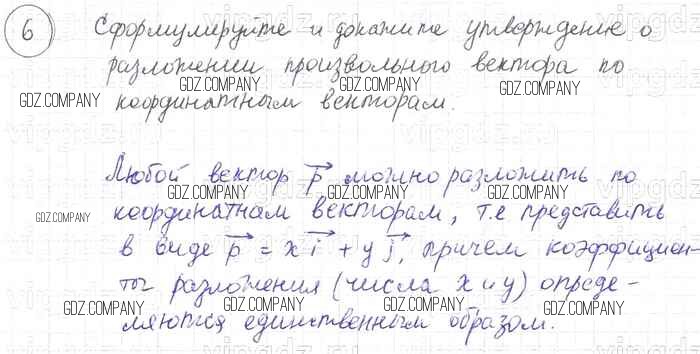 6 Сформулируйте и докажите утверждение о
разложении произвольного вектора по
координатным векторам.
Любой вектор p можно разложить по
координатам векторам, т.е представить
в виде p = x i + y j, причем коэффициен-
ты разложения (числа x и y) опреде-
ляются единственным образом.
GDZ.COMPANY GDZ.COMPANY GDZ.COMPANY GDZ.COMPANY
GDZ.COMPANY GDZ.COMPANY GDZ.COMPANY GDZ.COMPANY
GDZ.COMPANY GDZ.COMPANY GDZ.COMPANY